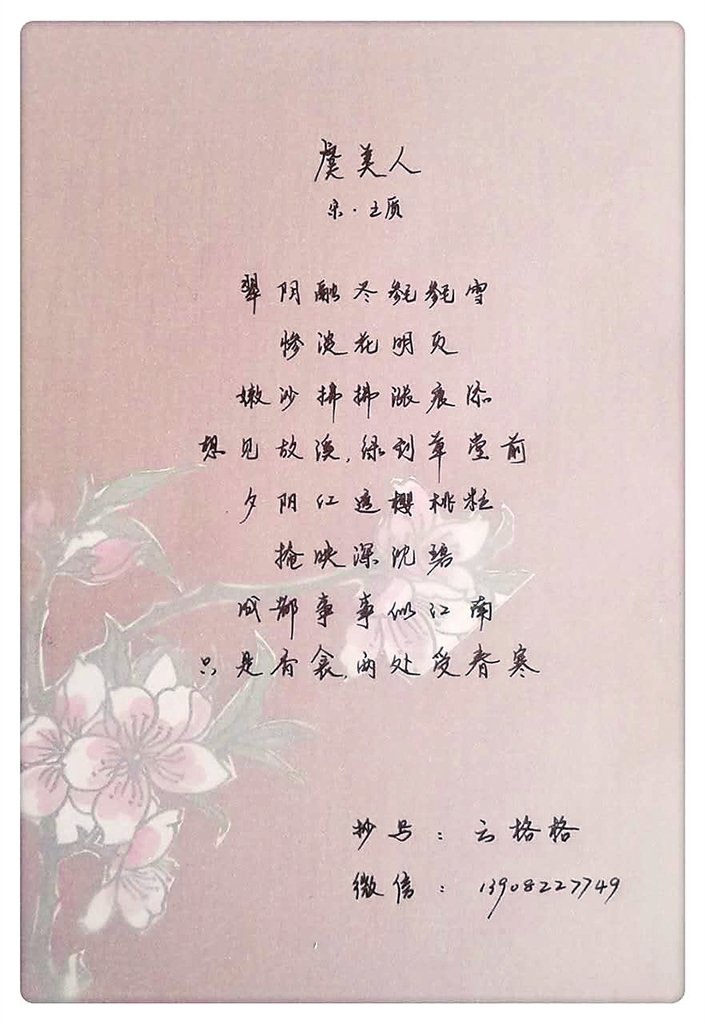 虞美人
宋·王质
翠阴融尽毵毵雪
惨淡花明灭
嫩沙拂拂涨痕添
想见故溪,绿到草堂前
夕阴红透樱桃粒
掩映深沈碧
成都事事似江南
只是香衾,两处受春寒
抄号：云格格
微信：13908227749